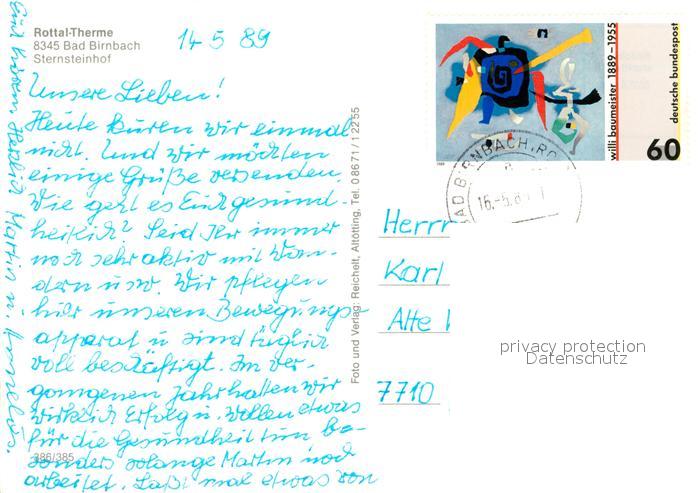 Rottal-Therme
8345 Bad Birnbach
Sternsteinhof
14 5 89
Unsere Lieben!
Heute kuren wir einmal
nicht. Und wir möchten
einige Grüße versenden.
Wie geht es Euch gesund-
heitlich? Seid Ihr immer
noch sehr aktiv mit Wan-
dern usw. Wir pflegen
hier unseren Bewegungs-
apparat u sind täglich
voll beschäftigt. Im ver-
gangenen Jahr hatten wir
wirklich Erfolg u. wollen etwas
für die Gesundheit tun be-
sonders solange Martin noch
arbeitet. Laßt mal etwas von
Euch hören. Herzlich Martin u.
386/385
Foto und Verlag: Reichelt, Altötting, Tel. 08671/12255
willi baumeister 1889-1955
deutsche bundespost
60
BAD BIRNBACH, RO
16.-5.8
Herrn
Karl
Alte
7710
privacy protection
Datenschutz